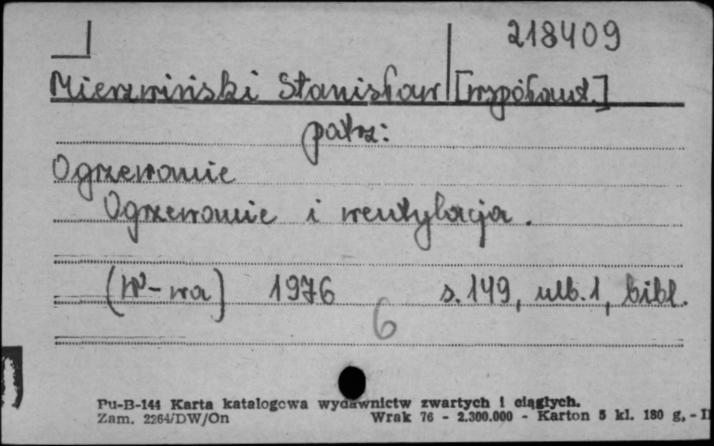 218409
Mierzwiński Stanisław [współaut.]
patrz:
Ogrzewanie
Ogrzewanie i wentylacja.
(W-wa) 1976 s. 149, nlb. 1, bibl.
6
Pu-B-144 Karta katalogowa wydawnictw zwartych i ciągłych.
Zam. 2264/DW/On Wrak 76 - 2.300.000 - Karton 5 kl. 180 g. - II